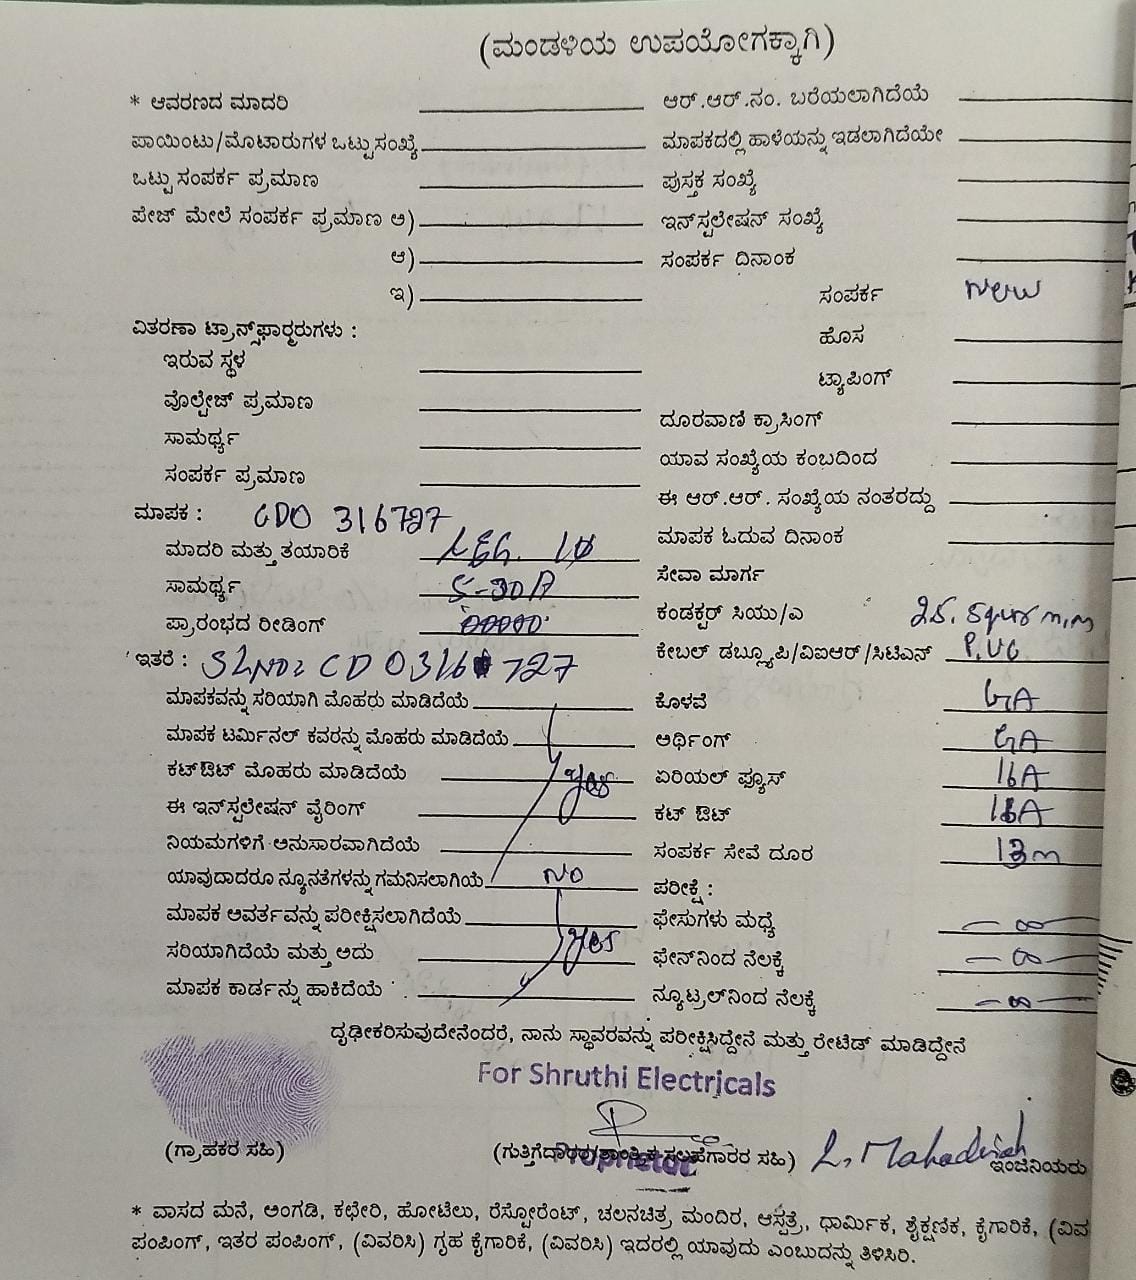 (ಮಂಡಳಿಯ ಉಪಯೋಗಕ್ಕಾಗಿ)
* ಆವರಣದ ಮಾದರಿ
ಪಾಯಿಂಟು/ಮೊಟಾರುಗಳ ಒಟ್ಟುಸಂಖ್ಯೆ
ಒಟ್ಟು ಸಂಪರ್ಕ ಪ್ರಮಾಣ
ಪೇಜ್ ಮೇಲೆ ಸಂಪರ್ಕ ಪ್ರಮಾಣ ಅ)
ಆ)
ಇ)
ವಿತರಣಾ ಟ್ರಾನ್ಸ್‌ಫಾರ್‍ಮರುಗಳು :
ಇರುವ ಸ್ಥಳ
ವೊಲ್ಟೇಜ್ ಪ್ರಮಾಣ
ಸಾಮರ್ಥ್ಯ
ಸಂಪರ್ಕ ಪ್ರಮಾಣ
ಮಾಪಕ : CDO 316727
ಮಾದರಿ ಮತ್ತು ತಯಾರಿಕೆ L&G. 1Ø
ಸಾಮರ್ಥ್ಯ 5-30A
ಪ್ರಾರಂಭದ ರೀಡಿಂಗ್ 00000.
ಇತರೆ : SLNO: CD 0316 727
ಮಾಪಕವನ್ನು ಸರಿಯಾಗಿ ಮೊಹರು ಮಾಡಿದೆಯೆ
ಮಾಪಕ ಟರ್ಮಿನಲ್ ಕವರನ್ನು ಮೊಹರು ಮಾಡಿದೆಯೆ
ಕಟ್‌ಔಟ್ ಮೊಹರು ಮಾಡಿದೆಯೆ yes
ಈ ಇನ್‌ಸ್ಟಲೇಷನ್ ವೈರಿಂಗ್
ನಿಯಮಗಳಿಗೆ ಅನುಸಾರವಾಗಿದೆಯೆ
ಯಾವುದಾದರೂ ನ್ಯೂನತೆಗಳನ್ನು ಗಮನಿಸಲಾಗಿಯೆ NO
ಮಾಪಕ ಆವರ್ತವನ್ನು ಪರೀಕ್ಷಿಸಲಾಗಿದೆಯೆ
ಸರಿಯಾಗಿದೆಯೆ ಮತ್ತು ಅದು yes
ಮಾಪಕ ಕಾರ್ಡನ್ನು ಹಾಕಿದೆಯೆ
ಆರ್.ಆರ್.ನಂ. ಬರೆಯಲಾಗಿದೆಯೆ
ಮಾಪಕದಲ್ಲಿ ಹಾಳೆಯನ್ನು ಇಡಲಾಗಿದೆಯೇ
ಪುಸ್ತಕ ಸಂಖ್ಯೆ
ಇನ್‌ಸ್ಟಲೇಷನ್ ಸಂಖ್ಯೆ
ಸಂಪರ್ಕ ದಿನಾಂಕ
ಸಂಪರ್ಕ New
ಹೊಸ
ಟ್ಯಾಪಿಂಗ್
ದೂರವಾಣಿ ಕ್ರಾಸಿಂಗ್
ಯಾವ ಸಂಖ್ಯೆಯ ಕಂಬದಿಂದ
ಈ ಆರ್.ಆರ್. ಸಂಖ್ಯೆಯ ನಂತರದ್ದು
ಮಾಪಕ ಓದುವ ದಿನಾಂಕ
ಸೇವಾ ಮಾರ್ಗ
ಕಂಡಕ್ಟರ್ ಸಿಯು/ಎ 25. squr m.m
ಕೇಬಲ್ ಡಬ್ಲ್ಯೂಪಿ/ವಿಐಆರ್/ಸಿಟಿಎನ್ P.VC
ಕೊಳವೆ GA
ಅರ್ಥಿಂಗ್ GA
ಏರಿಯಲ್ ಫ್ಯೂಸ್ 16A
ಕಟ್ ಔಟ್ 16A
ಸಂಪರ್ಕ ಸೇವೆ ದೂರ 13m
ಪರೀಕ್ಷೆ :
ಫೇಸುಗಳು ಮಧ್ಯೆ — ∞ —
ಫೇನ್‌ನಿಂದ ನೆಲಕ್ಕೆ — ∞ —
ನ್ಯೂಟ್ರಲ್‌ನಿಂದ ನೆಲಕ್ಕೆ — ∞ —
ದೃಢೀಕರಿಸುವುದೇನೆಂದರೆ, ನಾನು ಸ್ಥಾವರವನ್ನು ಪರೀಕ್ಷಿಸಿದ್ದೇನೆ ಮತ್ತು ರೇಟಿಡ್ ಮಾಡಿದ್ದೇನೆ
For Shruthi Electricals
L. Mahadevaiah
(ಗ್ರಾಹಕರ ಸಹಿ) (ಗುತ್ತಿಗೆದಾರರ/ತಾಂತ್ರಿಕ ಸಲಹೆಗಾರರ ಸಹಿ) ಇಂಜಿನಿಯರು
Proprietor
* ವಾಸದ ಮನೆ, ಅಂಗಡಿ, ಕಛೇರಿ, ಹೋಟೆಲು, ರೆಸ್ಟೋರೆಂಟ್, ಚಲನಚಿತ್ರ ಮಂದಿರ, ಆಸ್ಪತ್ರೆ, ಧಾರ್ಮಿಕ, ಶೈಕ್ಷಣಿಕ, ಕೈಗಾರಿಕೆ, (ವಿವ
ಪಂಪಿಂಗ್, ಇತರ ಪಂಪಿಂಗ್, (ವಿವರಿಸಿ) ಗೃಹ ಕೈಗಾರಿಕೆ, (ವಿವರಿಸಿ) ಇದರಲ್ಲಿ ಯಾವುದು ಎಂಬುದನ್ನು ತಿಳಿಸಿರಿ.